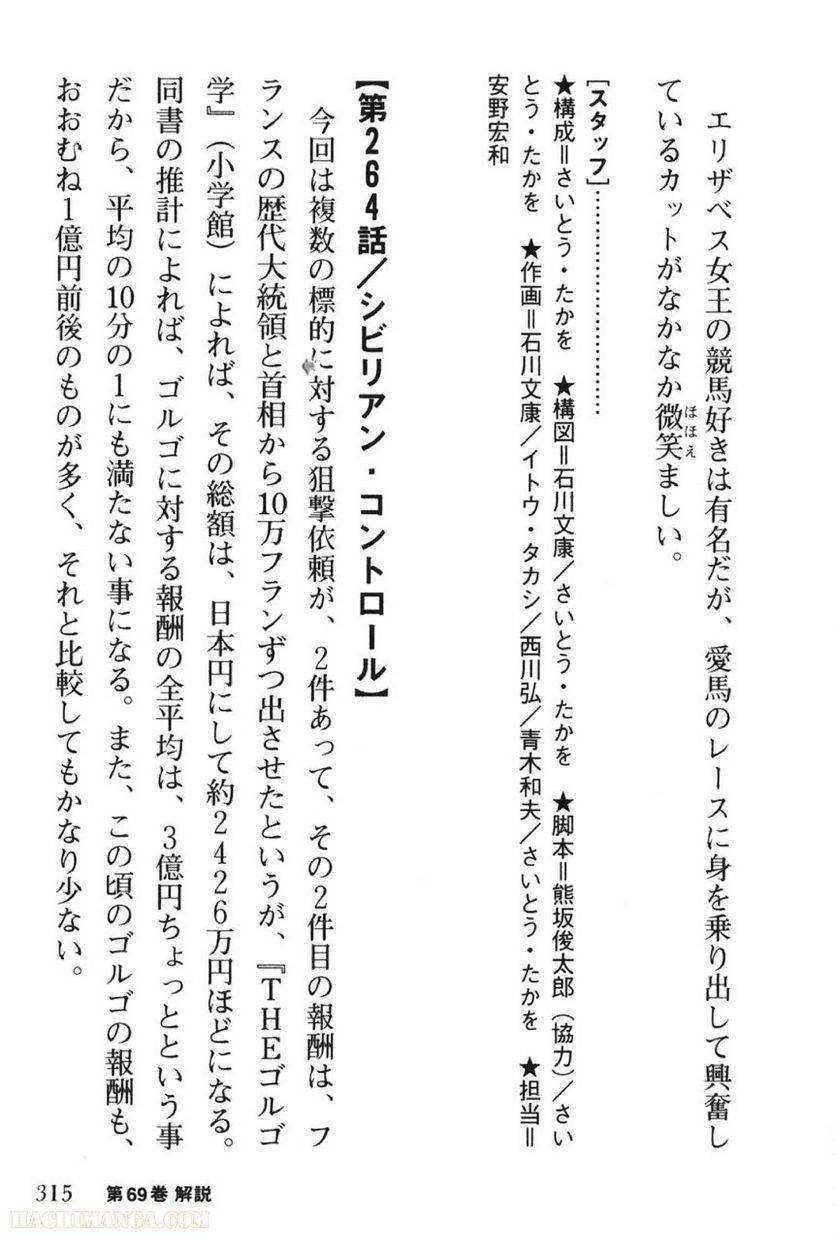 エリザベス女王の競馬好きは有名だが、愛馬のレースに身を乗り出して興奮し
ているカットがなかなか微笑ましい。
ほほえ
［スタッフ］…………………………
★構成＝さいとう・たかを　★構図＝石川文康／さいとう・たかを　★脚本＝熊坂俊太郎（協力）／さい
とう・たかを　★作画＝石川文康／イトウ・タカシ／西川弘／青木和夫／さいとう・たかを　★担当＝
安野宏和
【第264話／シビリアン・コントロール】
今回は複数の標的に対する狙撃依頼が、2件あって、その2件目の報酬は、フ
ランスの歴代大統領と首相から10万フランずつ出させたというが、『THEゴルゴ
学』（小学館）によれば、その総額は、日本円にして約2426万円ほどになる。
同書の推計によれば、ゴルゴに対する報酬の全平均は、3億円ちょっとという事
だから、平均の10分の1にも満たない事になる。また、この頃のゴルゴの報酬も、
おおむね1億円前後のものが多く、それと比較してもかなり少ない。
315　第69巻 解説
HACHIMANGA.COM